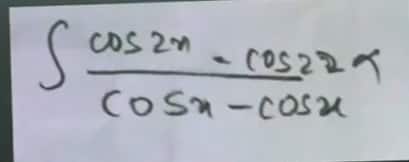 ∫ cos2x - cos22α
cosx - cosx